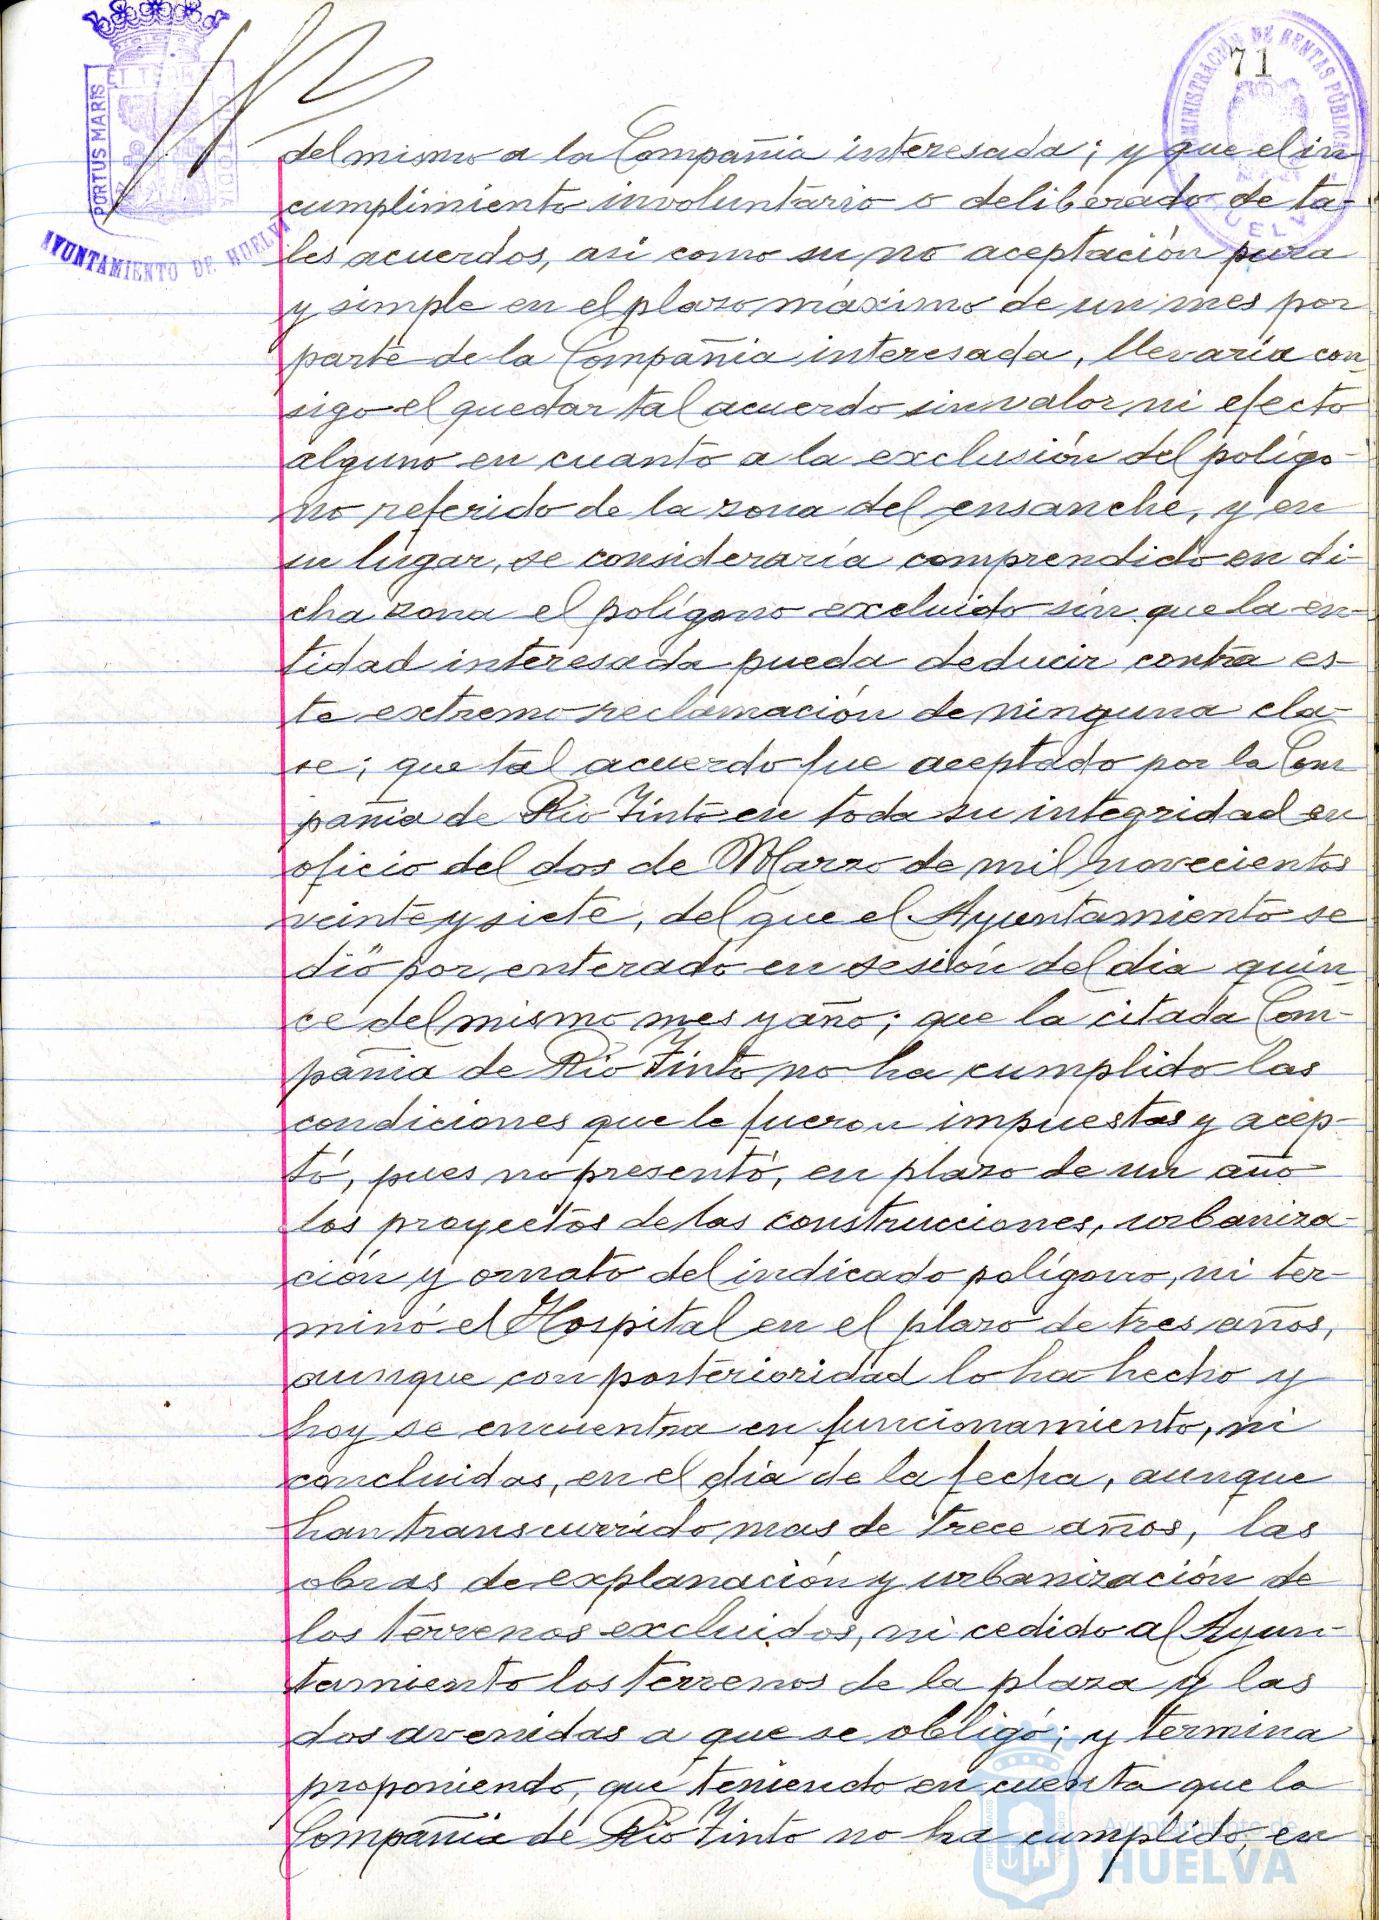 71
PORTUS MARIS ET TERRÆ CUSTODIA
AYUNTAMIENTO DE HUELVA
ADMINISTRACIÓN DE RENTAS PÚBLICAS
HUELVA
del mismo a la Compañia interesada; y que el in-
cumplimiento involuntario o deliberado de ta-
les acuerdos, asi como su no aceptación pura
y simple en el plazo máximo de un mes por
parte de la Compañia interesada, llevaría con-
sigo el quedar tal acuerdo sin valor ni efecto
alguno en cuanto a la exclusión del polígo-
no referido de la zona del ensanche, y en
su lugar, se consideraría comprendido en di-
cha zona el polígono excluido sin que la en-
tidad interesada pueda deducir contra es-
te extremo reclamación de ninguna cla-
se; que tal acuerdo fue aceptado por la Com
pañia de Rio Tinto en toda su integridad en
oficio del dos de Marzo de mil novecientos
veinte y siete, del que el Ayuntamiento se
dió por enterado en sesión del dia quin-
ce del mismo mes y año; que la citada Com-
pañia de Rio Tinto no ha cumplido las
condiciones que le fueron impuestas y acep-
tó, pues no presentó, en plazo de un año
los proyectos de las construcciones, urbaniza-
ción y ornato del indicado polígono, ni ter-
minó el Hospital en el plazo de tres años,
aunque con posterioridad lo ha hecho y
hoy se encuentra en funcionamiento, ni
concluidas, en el dia de la fecha, aunque
han transcurrido mas de trece años, las
obras de explanación y urbanización de
los terrenos excluidos, ni cedido al Ayun-
tamiento los terrenos de la plaza y las
dos avenidas a que se obligó; y termina
proponiendo, que teniendo en cuenta que la
Compañia de Rio Tinto no ha cumplido, en
Ayuntamiento de
HUELVA